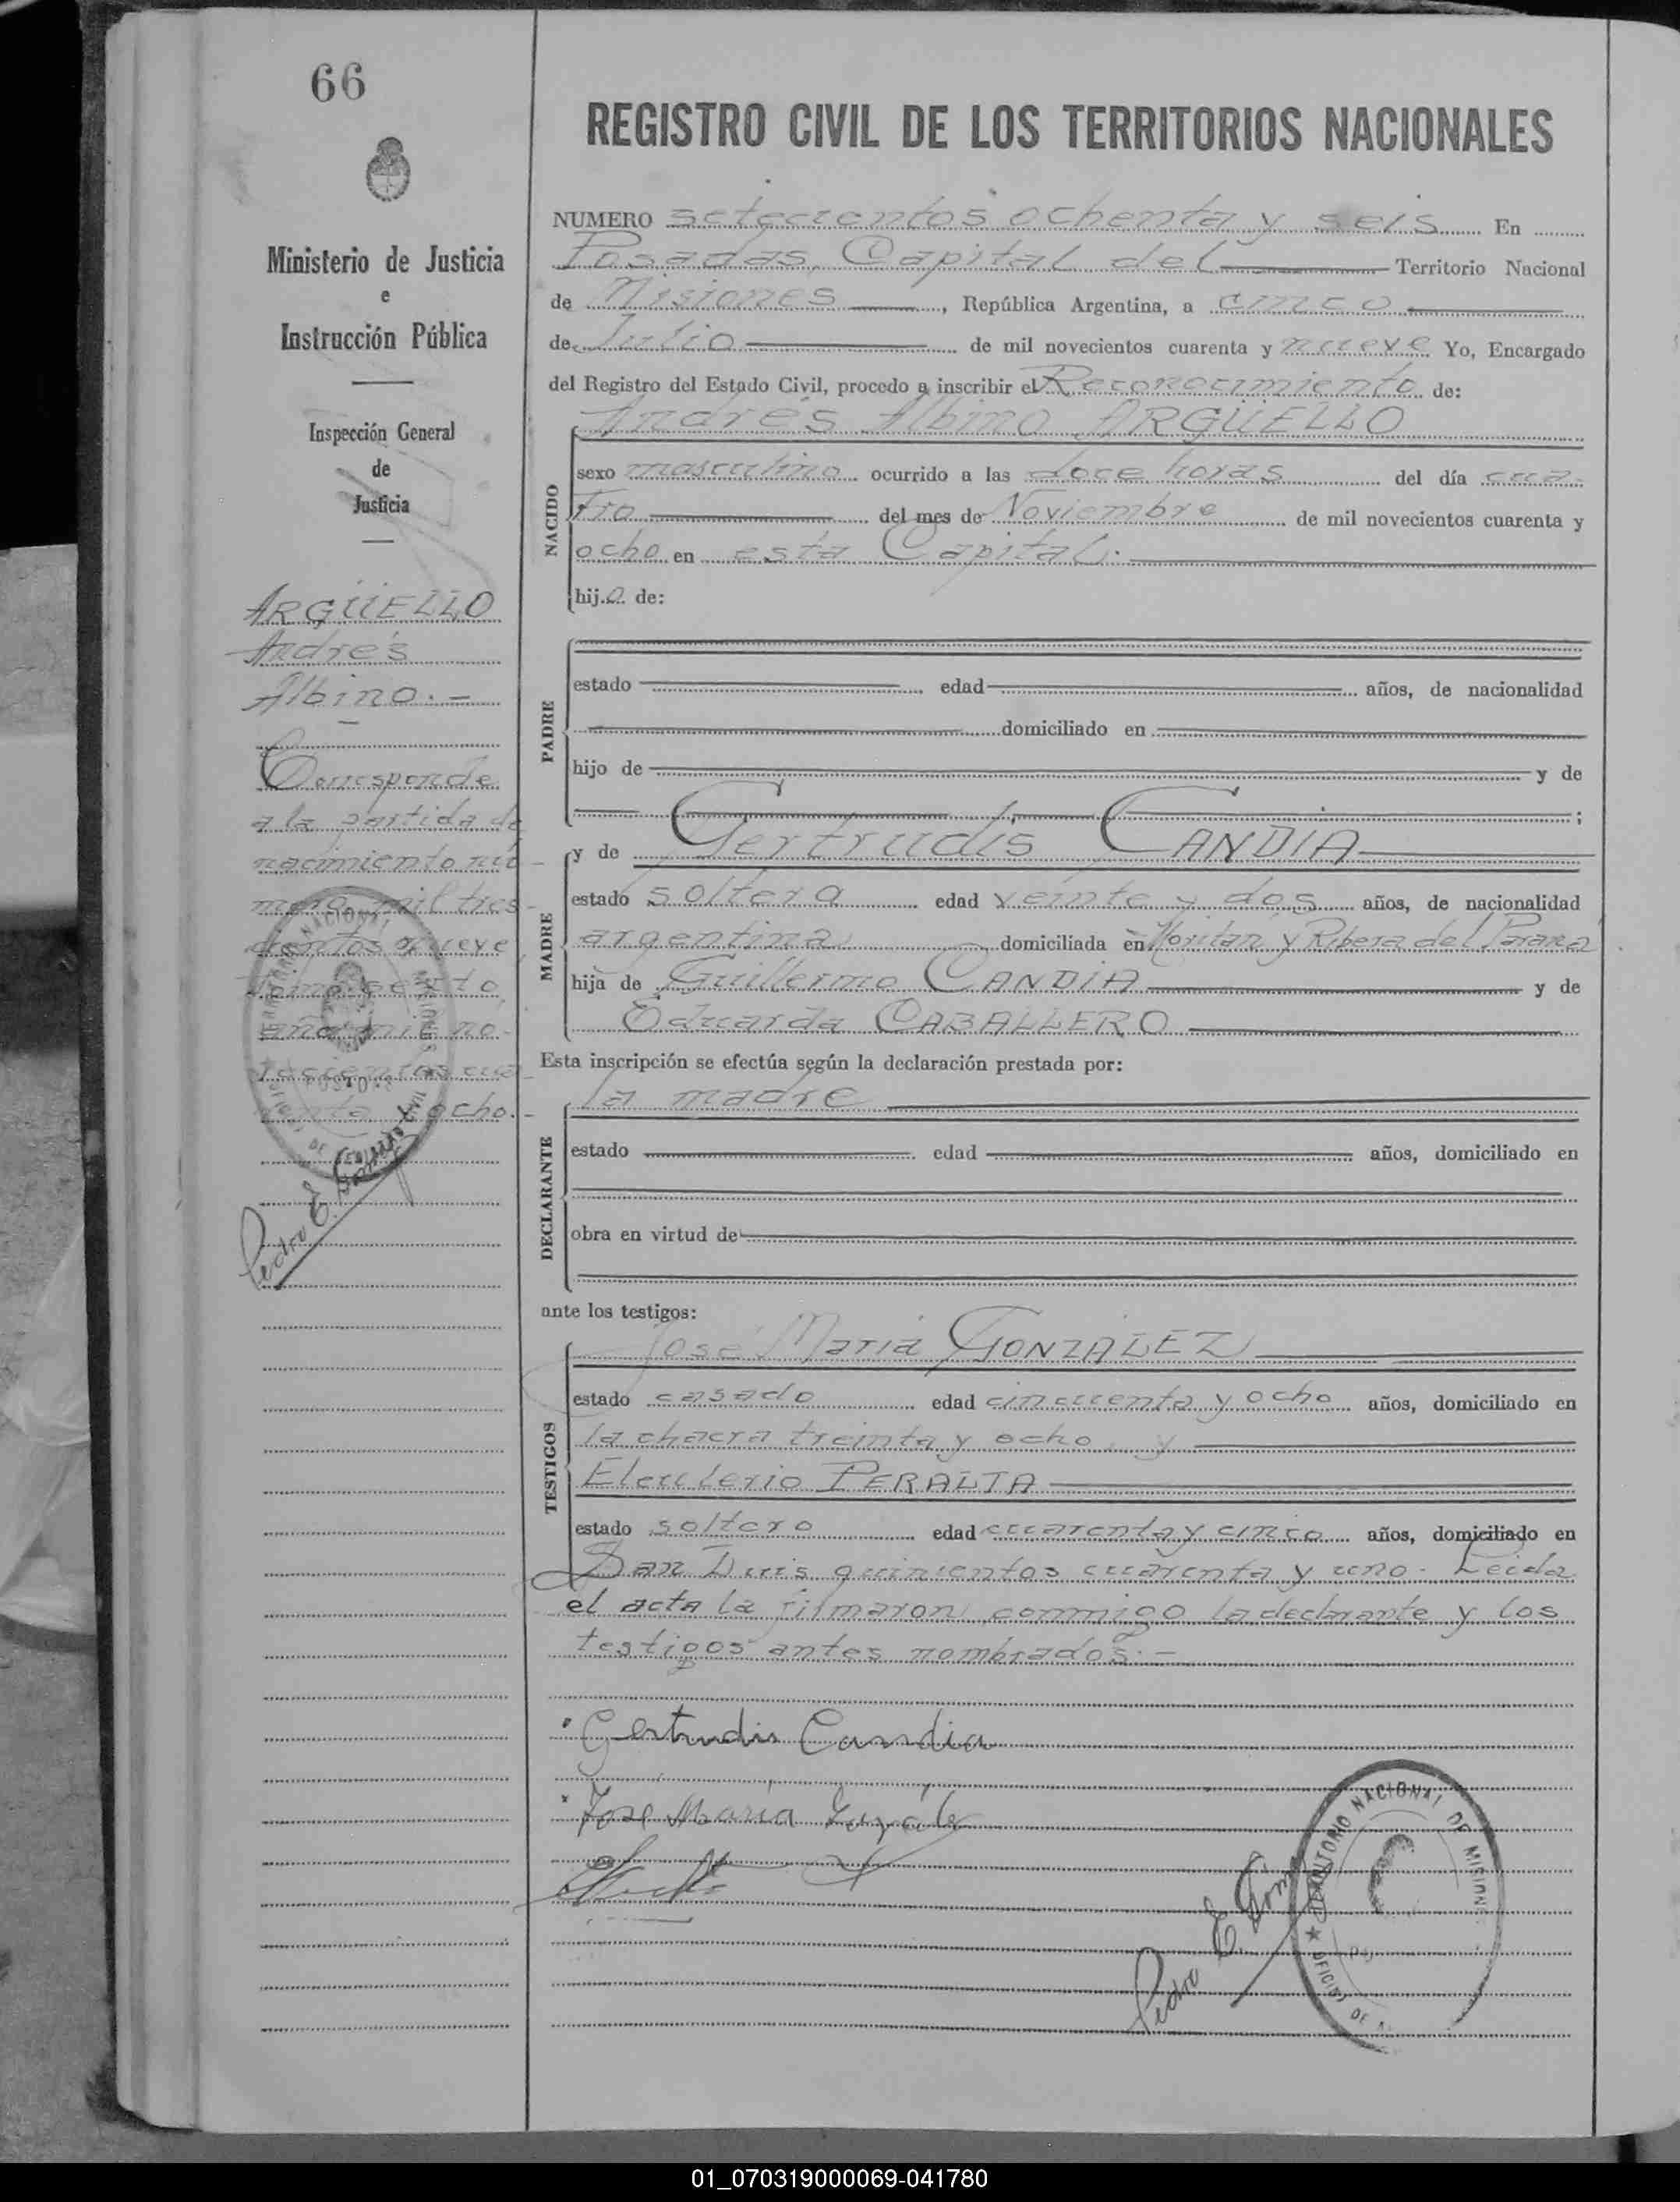 66
Ministerio de Justicia
e
Instrucción Pública
Inspección General
de
Justicia
ARGÜELLO
Andrés
Albino.-
Corresponde
a la partida de
nacimiento nú-
mero mil tres-
cientos nueve
tomo sexto
año mil no-
vecientos cua-
renta y ocho.-
Pedro E.
REGISTRO CIVIL DE LOS TERRITORIOS NACIONALES
NUMERO setecientos ochenta y seis En
Posadas, Capital del Territorio Nacional
de Misiones, República Argentina, a cinco
de Julio de mil novecientos cuarenta y nueve Yo, Encargado
del Registro del Estado Civil, procedo a inscribir el Reconocimiento de:
Andrés Albino ARGÜELLO
NACIDO
sexo masculino ocurrido a las doce horas del día cua-
tro del mes de Noviembre de mil novecientos cuarenta y
ocho en esta Capital.
hijo de:
PADRE
estado edad años, de nacionalidad
domiciliado en
hijo de y de
;
MADRE
y de Gertrudis CANDIA
estado soltera edad veinte y dos años, de nacionalidad
argentina domiciliada en y Ribera del Paraná
hija de Guillermo CANDIA y de
Eduarda CABALLERO
Esta inscripción se efectúa según la declaración prestada por:
la madre
DECLARANTE
estado edad años, domiciliado en
obra en virtud de
ante los testigos:
José María GONZALEZ
TESTIGOS
estado casado edad cincuenta y ocho años, domiciliado en
la chacra treinta y ocho y
Eleuterio PERALTA
estado soltero edad cuarenta y cinco años, domiciliado en
San Luis quinientos cuarenta y uno. Leida
el acta la firmaron conmigo la declarante y los
testigos antes nombrados.-
Gertrudis Candia
José María González
Pedro E.
TERRITORIO NACIONAL DE MISIONES
OFICIAL DE
01_070319000069-041780